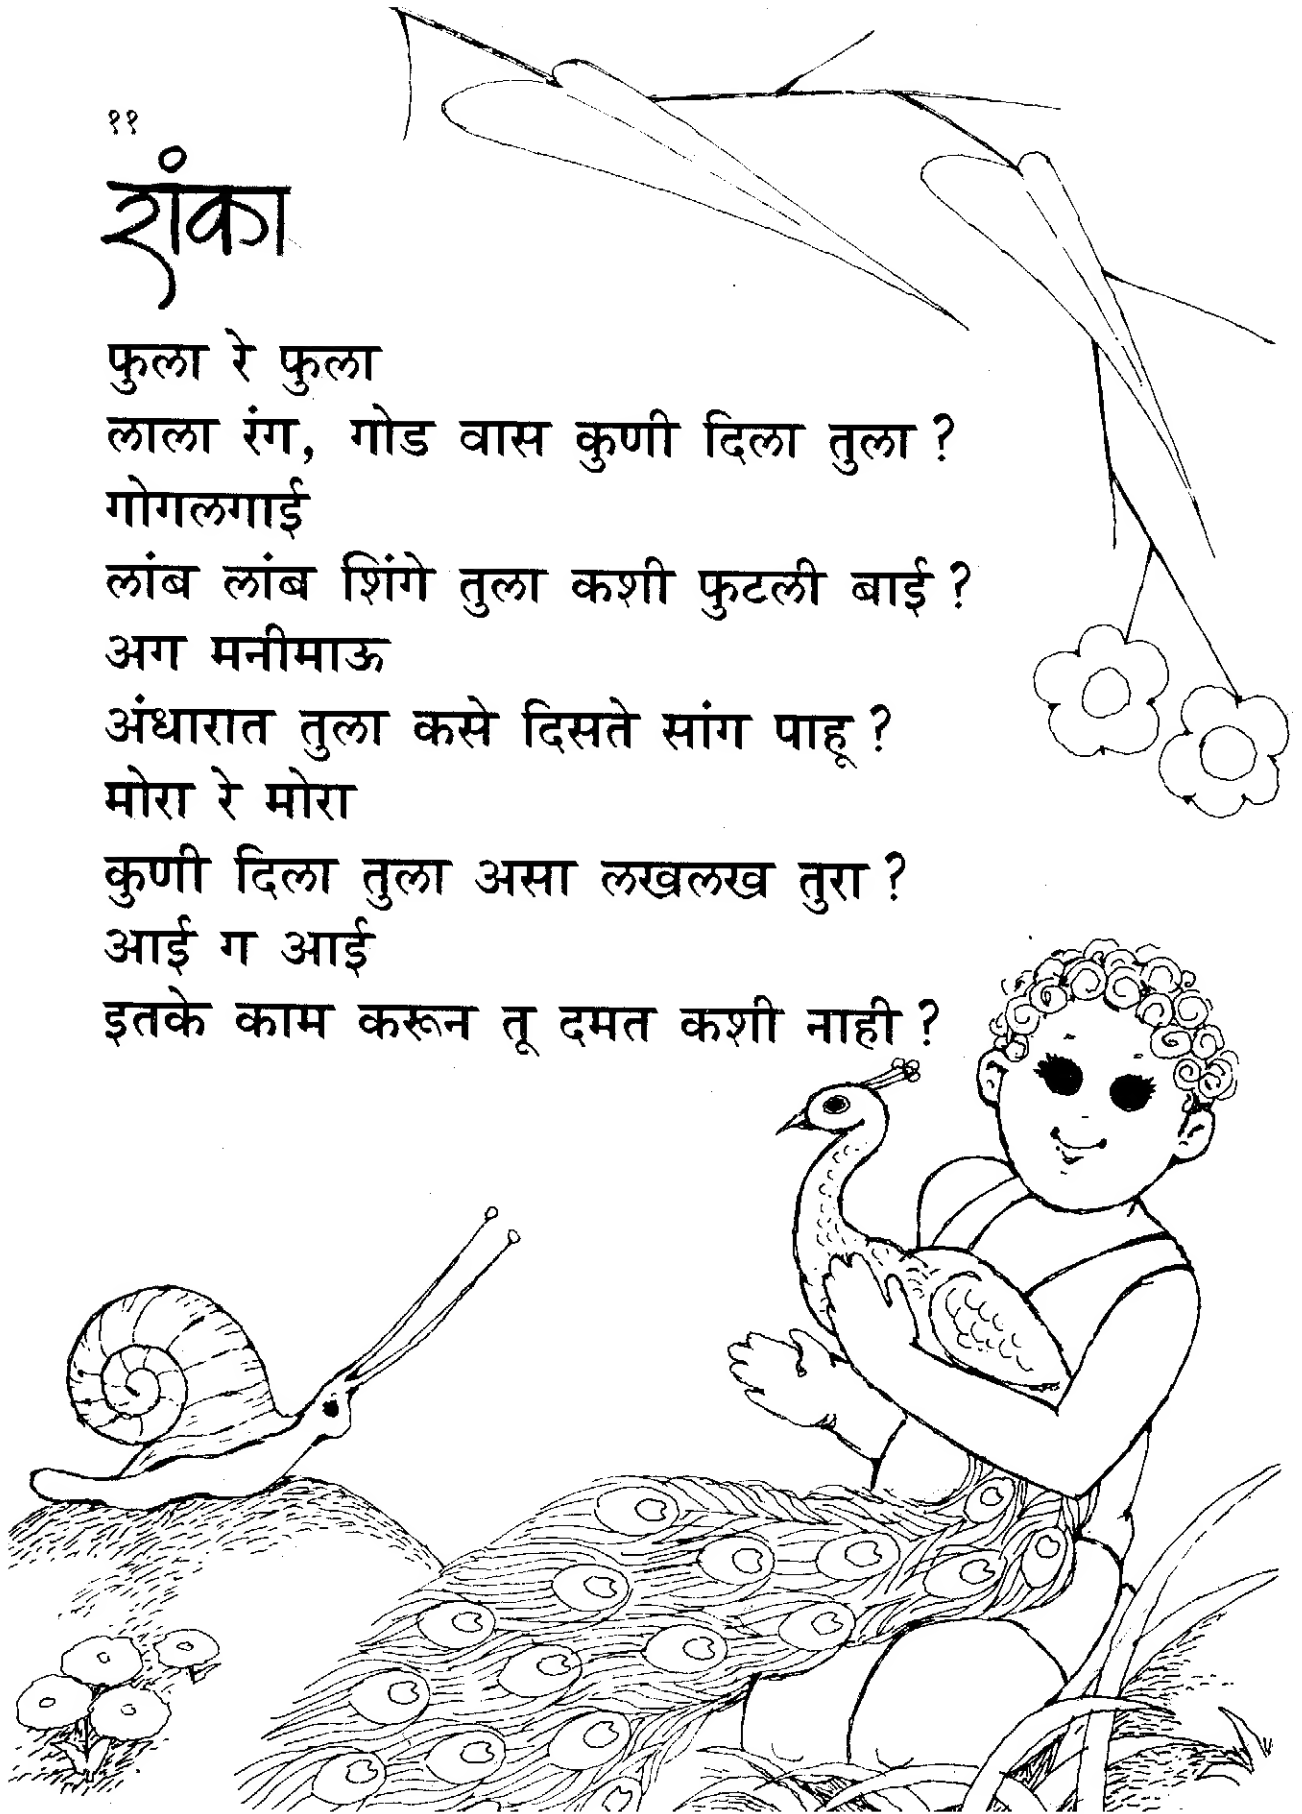 ११
शंका
फुला रे फुला
लाला रंग, गोड वास कुणी दिला तुला ?
गोगलगाई
लांब लांब शिंगे तुला कशी फुटली बाई ?
अग मनीमाऊ
अंधारात तुला कसे दिसते सांग पाहू ?
मोरा रे मोरा
कुणी दिला तुला असा लखलख तुरा ?
आई ग आई
इतके काम करून तू दमत कशी नाही ?